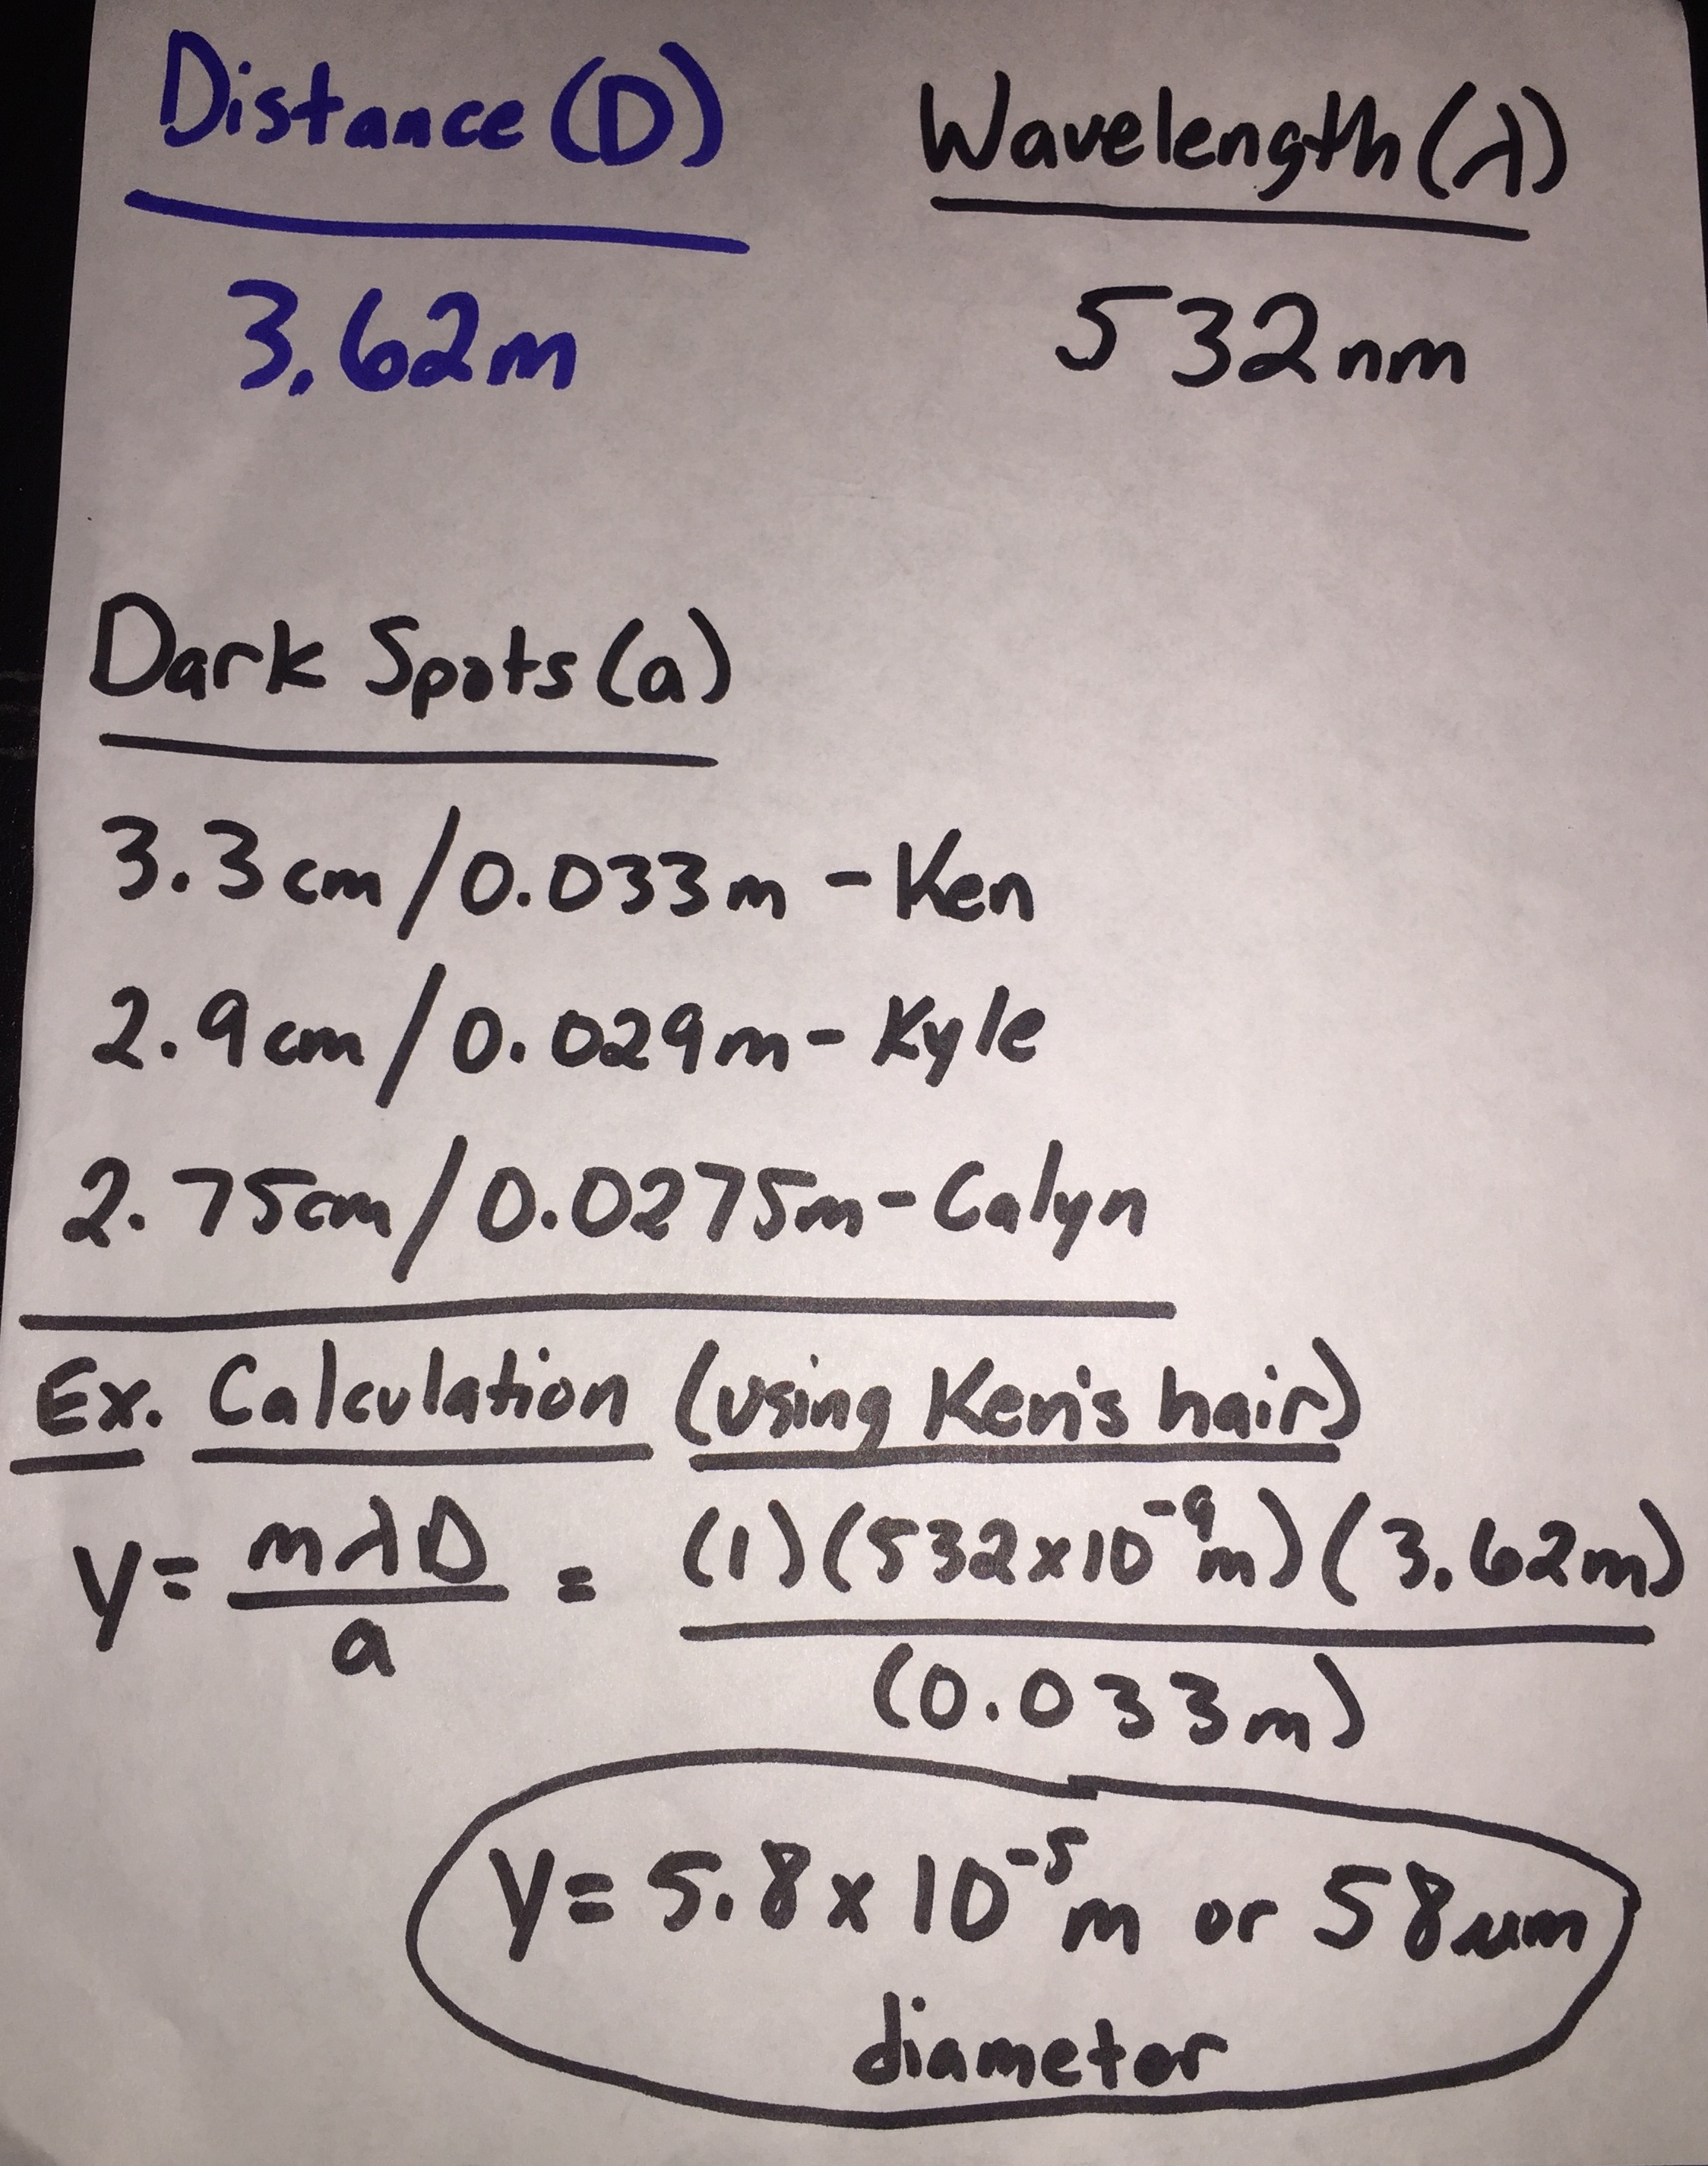 Distance (D) Wavelength (λ)
3.62m 532nm
Dark Spots (a)
3.3cm/0.033m - Ken
2.9cm/0.029m - Kyle
2.75cm/0.0275m - Calyn
Ex. Calculation (using Ken's hair)
y = mλD/a = (1)(532x10⁻⁹m)(3.62m)/(0.033m)
y = 5.8 x 10⁻⁵m or 58µm
diameter